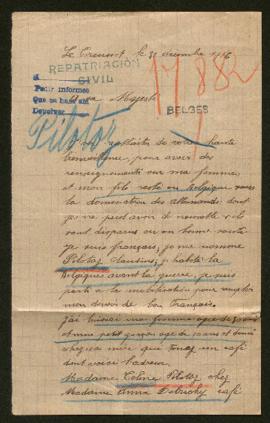 Le Creusot le 31 décembre 1916
REPATRIACIÓN
CIVIL
17882
A
Pedir informes
Que se hace así
Devolver
Majesté
BELGES
Pilotaz
je sollicite de votre haute
pour avoir des
renseignements sur ma femme
et mon fils resté en Belgique sous
la domination des allemands dont
je n'ai peut avoir de nouvelle s'ils
sont disparus ou en bonne santé
je suis français, je me nomme
Pilotaz j'habite la
Belgique avant la guerre, je suis
parti à la mobilisation pour
mon devoir de bon français.
J'ai laissé ma femme âgée de
et mon petit garçon âgé de ans et demi
chez ma mère que tenez un café
dont voici l'adresse
Madame Celine Pilotaz chez
Madame Anna café